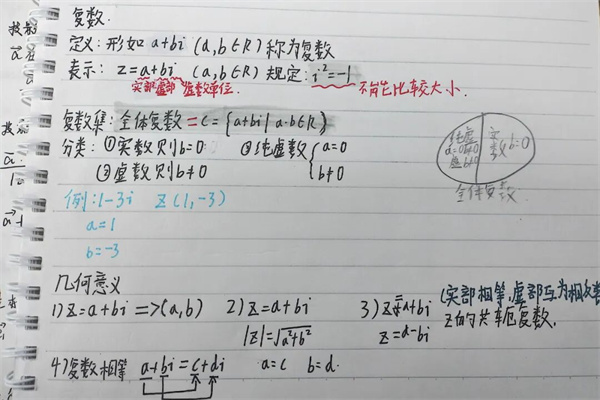 复数.
定义: 形如 a+bi (a,b∈R) 称为复数
表示: z=a+bi (a,b∈R) 规定: i²=-1 不能比较大小.
实部 虚部 虚数单位.
复数集: 全体复数 = C = {a+bi | a·b∈R}
分类: ①实数则 b=0 ③纯虚数 { a=0
②虚数则 b≠0 b≠0
纯虚 a=0 b≠0 虚 b≠0
实数 b=0
全体复数.
例: 1-3i Z(1,-3)
a=1
b=-3
几何意义
1) z=a+bi =>(a,b) 2) z=a+bi 3) z=a+bi (实部相等,虚部互为相反数
|z|=√a²+b² z=a-bi z的共轭复数.
4) 复数相等 a+bi=c+di a=c b=d.